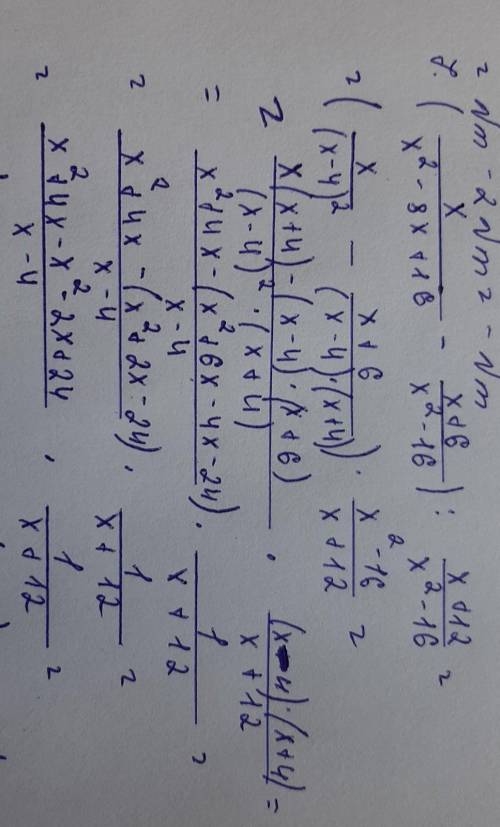 = √m - 2√m = - √m
8. ( x / (x² - 8x + 16) - (x + 6) / (x² - 16) ) : (x + 12) / (x² - 16) =
= ( x / (x - 4)² - (x + 6) / ((x - 4) · (x + 4)) ) · (x² - 16) / (x + 12) =
= (x(x + 4) - (x - 4) · (x + 6)) / ((x - 4)² · (x + 4)) · ((x - 4) · (x + 4)) / (x + 12) =
= (x² + 4x - (x² + 6x - 4x - 24)) / (x - 4) · 1 / (x + 12) =
= (x² + 4x - (x² + 2x - 24)) / (x - 4) · 1 / (x + 12) =
= (x² + 4x - x² - 2x + 24) / (x - 4) · 1 / (x + 12) =